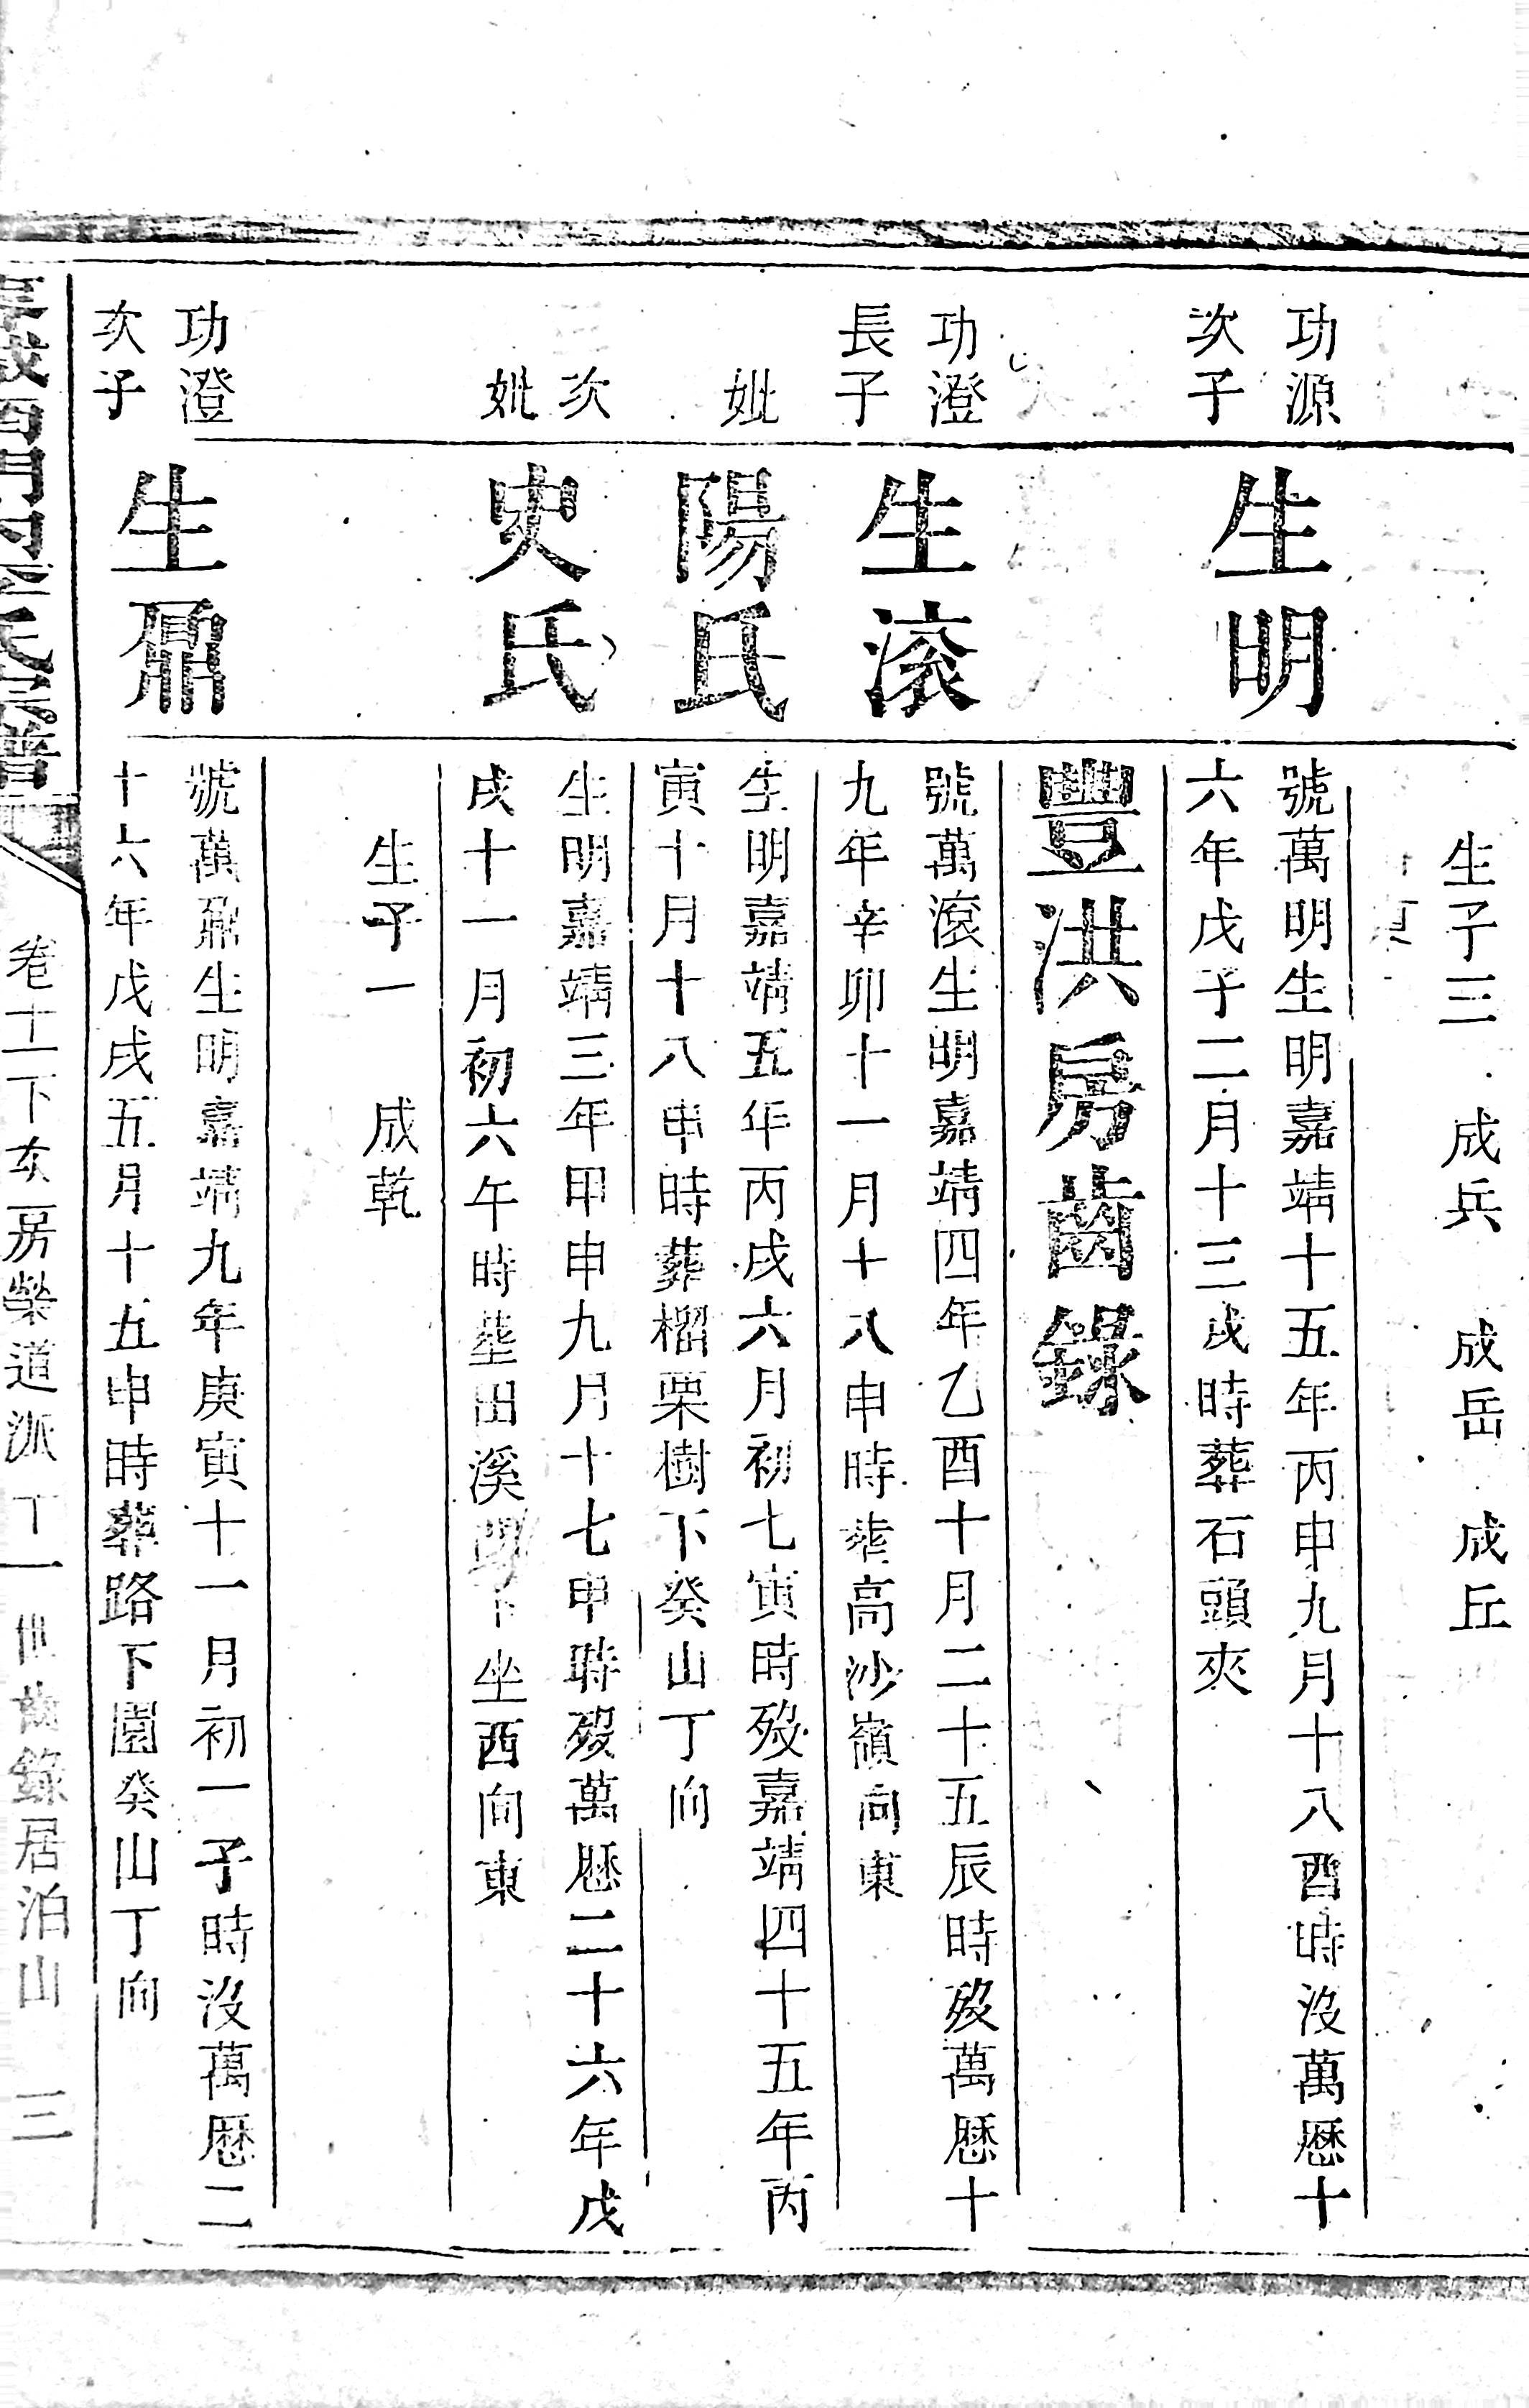 生子三 成兵 成岳 成丘
功源
次子
生明
號萬明生明嘉靖十五年丙申九月十八酉時沒萬厯十
六年戊子二月十三戌時葬石頭夾
豐洪房齒錄
功澄
長子
生滚
號萬滚生明嘉靖四年乙酉十月二十五辰時歿萬厯十
九年辛卯十一月十八申時葬高沙嶺向東
妣
陽氏
生明嘉靖五年丙戌六月初七寅時歿嘉靖四十五年丙
寅十月十八申時葬榴栗樹下癸山丁向
次
妣
史氏
生明嘉靖三年甲申九月十七申時歿萬厯二十六年戊
戌十一月初六午時塟出溪下坐西向東
生子一 成乾
功澄
次子
生鼐
號萬鼐生明嘉靖九年庚寅十一月初一子時沒萬厯二
十六年戊戌五月十五申時葬路下園癸山丁向
西門內李氏宗譜
卷十一下亥房榮道派丁一世齒錄居泊山 三